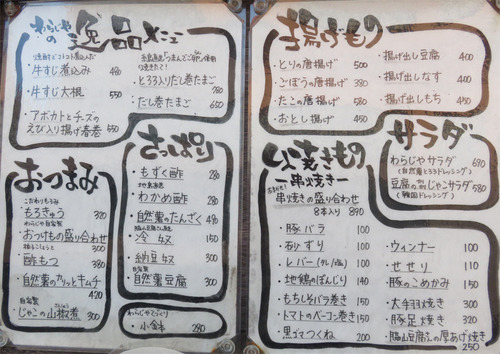 わらじやの逸品メニュー
焼酎でコトコト煮込んだ
・牛すじ煮込み 480
・牛すじ大根 550
・アボカドとチーズの
えび入り揚げ春巻 550
・とろろ入りだし巻たまご
780
・だし巻たまご 600
おつまみ
こだわりもろみ
・もろきゅう 320
わらじや自家製
・おつけもの盛り合わせ
300
・酢もつ 380
・自然薯のカリッとキムチ
420
自家製
・じゃこの山椒煮 300
さっぱり
・もずく酢 280
・わかめ酢 280
・自然薯のたんざく 480
・冷奴 150
・納豆奴 300
・自然薯豆腐 300
・小鉢 280
揚げもの
・とりの唐揚げ 500
・ごぼうの唐揚げ 380
・たこの唐揚げ 580
・おとし揚げ 450
・揚げ出し豆腐 400
・揚げ出しなす 400
・揚げ出しもち 450
サラダ
わらじやサラダ 680
(自然薯とろろドレッシング)
じゃこサラダ 580
(韓国ドレッシング)
いろんな焼きもの
―串焼き―
串焼きの盛り合わせ
8本入り 890
・豚バラ 100
・砂ずり 100
・レバー 100
・地鶏のぼんじり 140
・もちもちバラ巻き 150
・トマトのベーコン巻き 150
・黒ゴマつくね 200
・ウィンナー 100
・せせり 110
・豚のこめかみ 150
・大手羽焼き 300
・豚足焼き 320
の厚あげ焼き
250